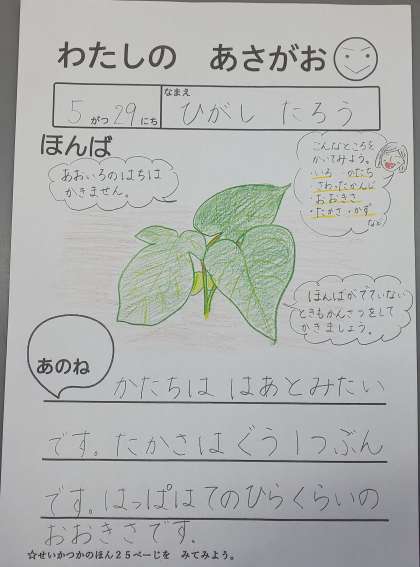 わたしの あさがお
5がつ29にち
なまえ
ひがし たろう
ほんば
あおいろのはちは
かきません。
こんなところを
かいてみよう。
・いろ ・かたち
・さわったかんじ
・おおきさ
・たかさ・かず
など
ほんばがでていない
ときもかんさつをして
かきましょう。
あのね
かたちは はあとみたい
です。たかさはぐう1つぶん
です。はっぱはてのひらくらいの
おおきさです。
☆せいかつかのほん25ぺーじを みてみよう。